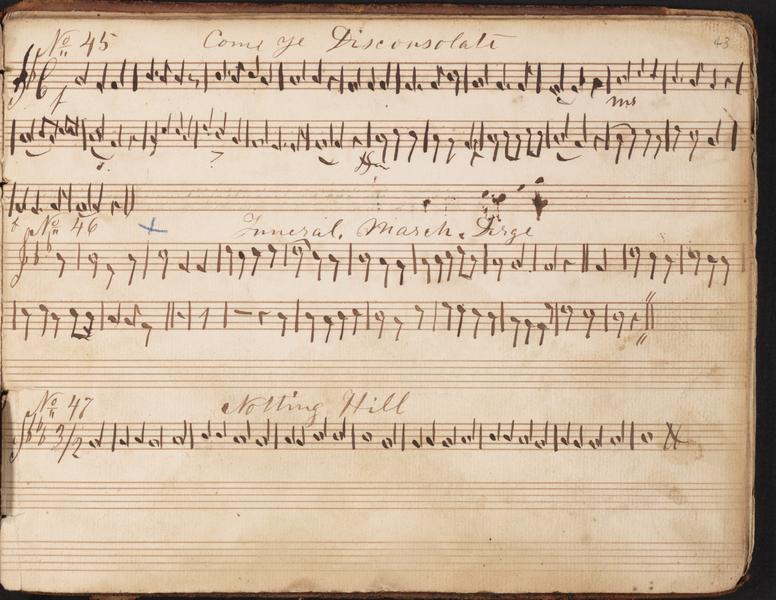 No 45 Come ye Disconsolate 43
f
ms
No 46 Funeral. March. Dirge
No 47 Notting Hill
3/2